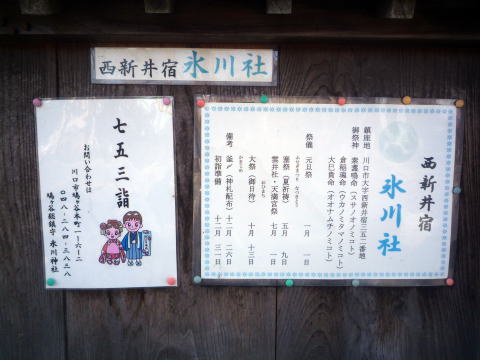 西新井宿 氷川社
西新井宿
氷川社
鎮座地 川口市大字西新井宿三五二番地
御祭神 素盞嗚命(スサノオノミコト)
倉稲魂命(ウカノミタマノミコト)
大已貴命(オオナムチノミコト)
祭儀 元旦祭 一月 一日
塞祭(夏祈祷) 五月 九日
雲井社・天満宮祭 七月 一日
大祭(御日待) 十月 十三日
備考 釜〆(神札配布)十二月 二六日
初詣準備 十二月 三一日
七五三詣
お問い合わせは
川口市鳩ヶ谷本町一-六-二
〇四八-二八四-三八三八
鳩ヶ谷総鎮守 氷川神社